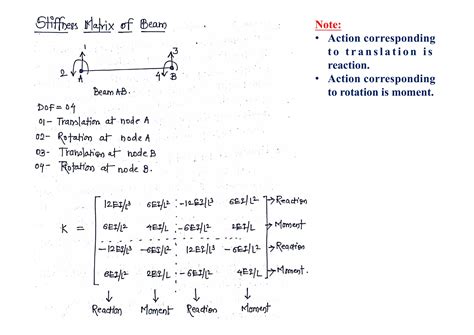 Stiffness Matrix of Beam
1 3
2 4
A B
Beam AB.
DOF = 04
01- Translation at node A
02- Rotation at node A
03- Translation at node B
04- Rotation at node B.
12EI/L³ 6EI/L² -12EI/L³ 6EI/L² → Reaction
K = 6EI/L² 4EI/L -6EI/L² 2EI/L → Moment
-12EI/L³ -6EI/L² 12EI/L³ -6EI/L² → Reaction
6EI/L² 2EI/L -6EI/L² 4EI/L → Moment.
↓ ↓ ↓ ↓
Reaction Moment Reaction Moment
Note:
• Action corresponding
to translation is
reaction.
• Action corresponding
to rotation is moment.